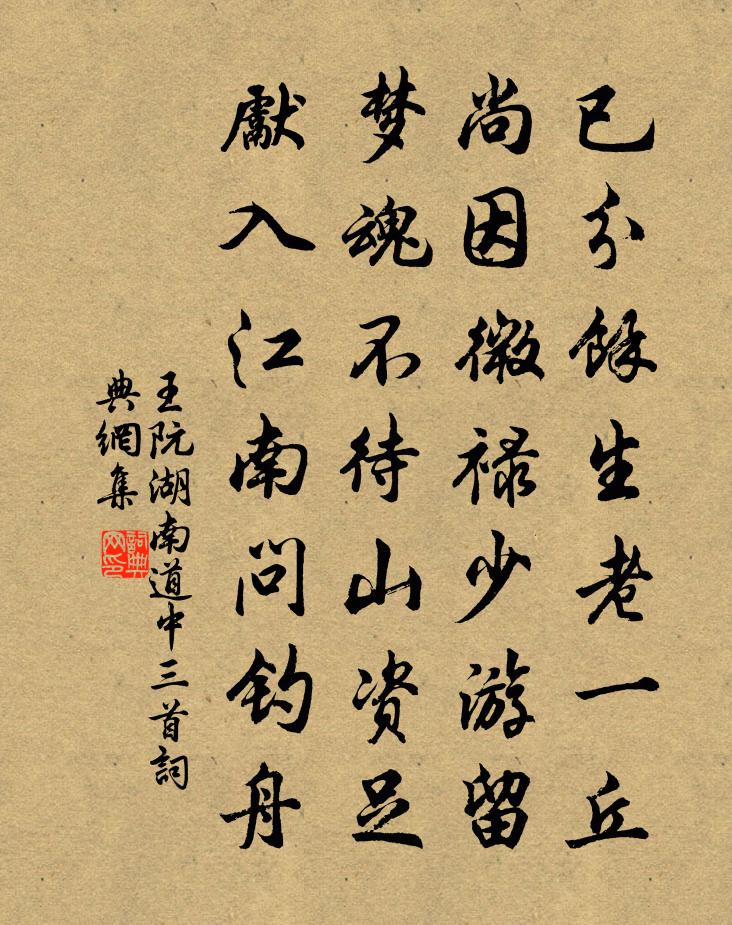 已分餘生老一丘
尚因微禄少游留
梦魂不待山资足
献入江南问钓舟
王阮湖南道中三首詞
典網集
詞典
网印